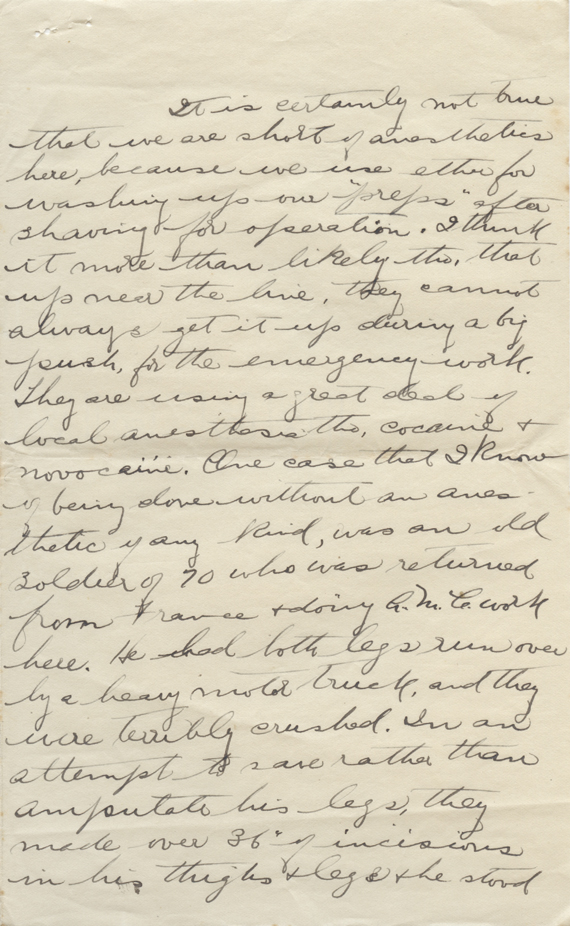 It is certainly not true
that we are short of anesthetics
here, because we use ether for
washing up our "preps" after
shaving for operation. I think
it more than likely tho, that
up near the line, they cannot
always get it up during a big
push, for the emergency work.
They are using a great deal of
local anesthesia tho, cocaine +
novocaine. One case that I know
of being done without an anes-
thetic of any kind, was an old
soldier of 70 who was returned
from France + doing A.M.C. work
here. He had both legs run over
by a heavy motor truck, and they
were terribly crushed. In an
attempt to save rather than
amputate his legs, they
made over 36" of incisions
in his thighs + legs + he stood